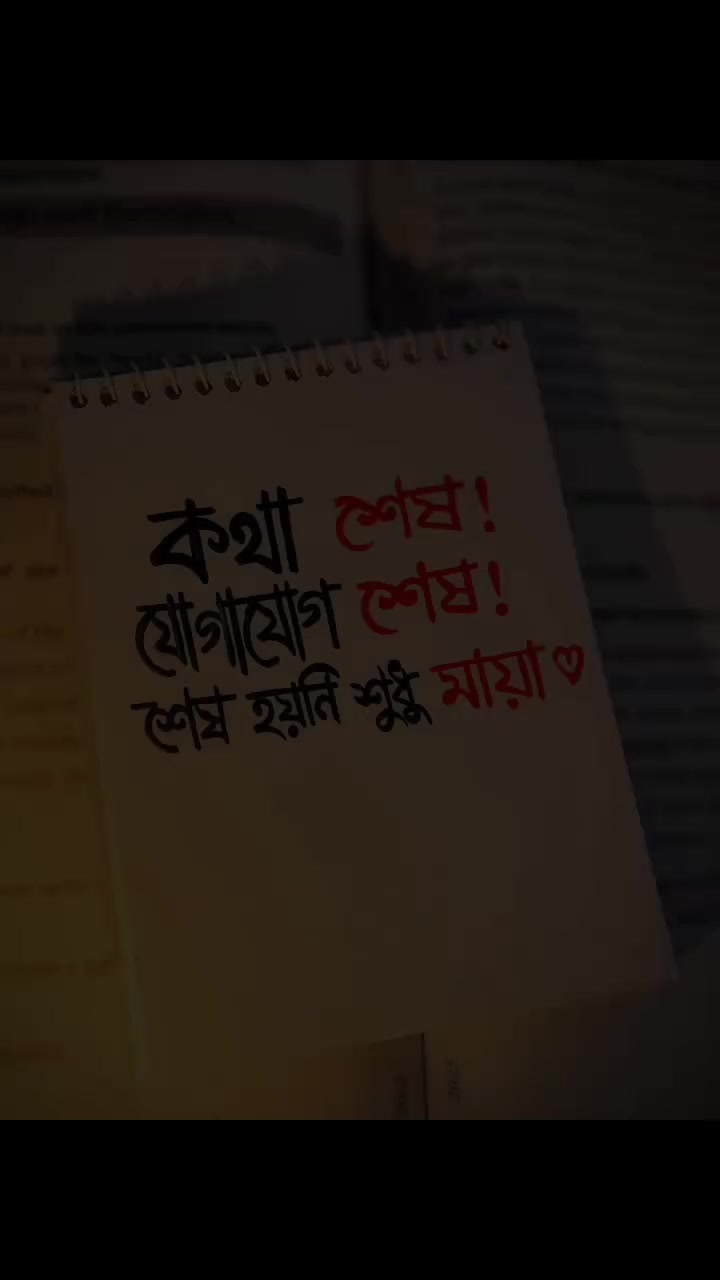 কথা শেষ!
যোগাযোগ শেষ!
শেষ হয়নি শুধু মায়া♡